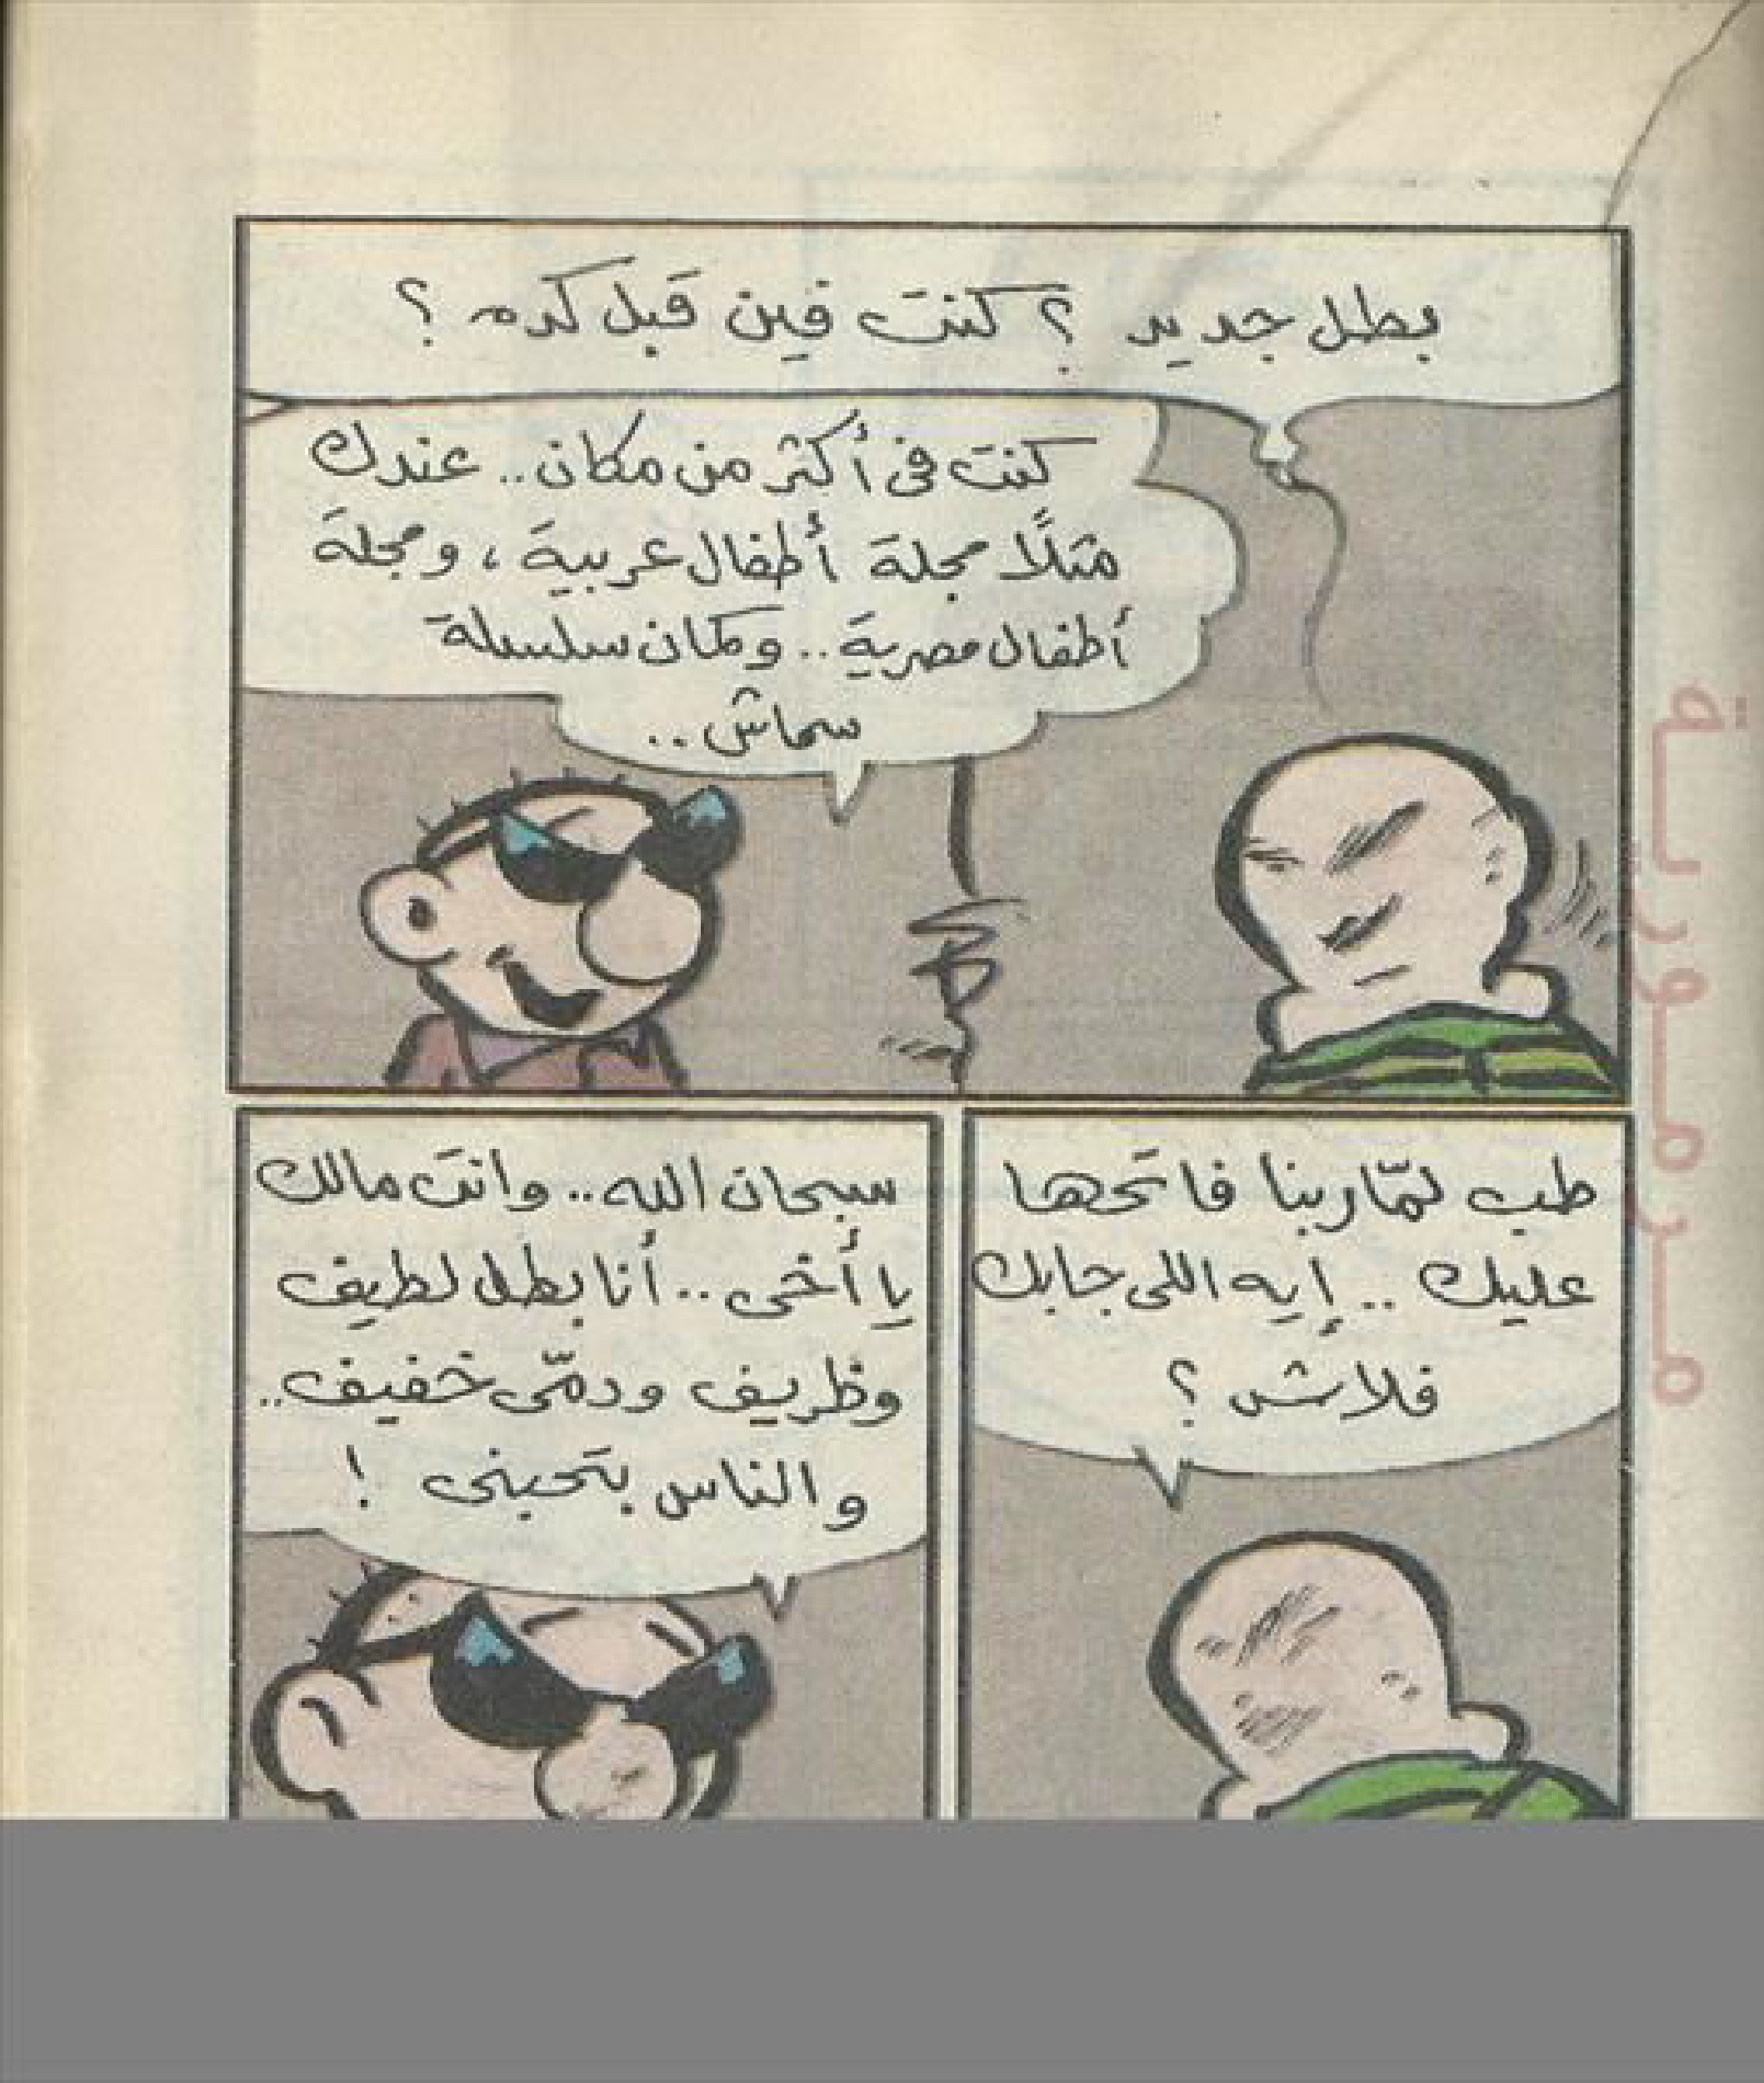 بطل جديد ؟ كنت فين قبل كده ؟
كنت فى أكثر من مكان.. عندك
مثلًا مجلة أطفال عربية، ومجلة
أطفال مصرية.. وكمان سلسلة
سماش..
طب لمّا ربنا فاتحها
عليك .. إيه اللى جابك
فلاش ؟
سبحان الله.. وانت مالك
يا أخى .. أنا بطل لطيف
وظريف ودمّى خفيف..
والناس بتحبنى !